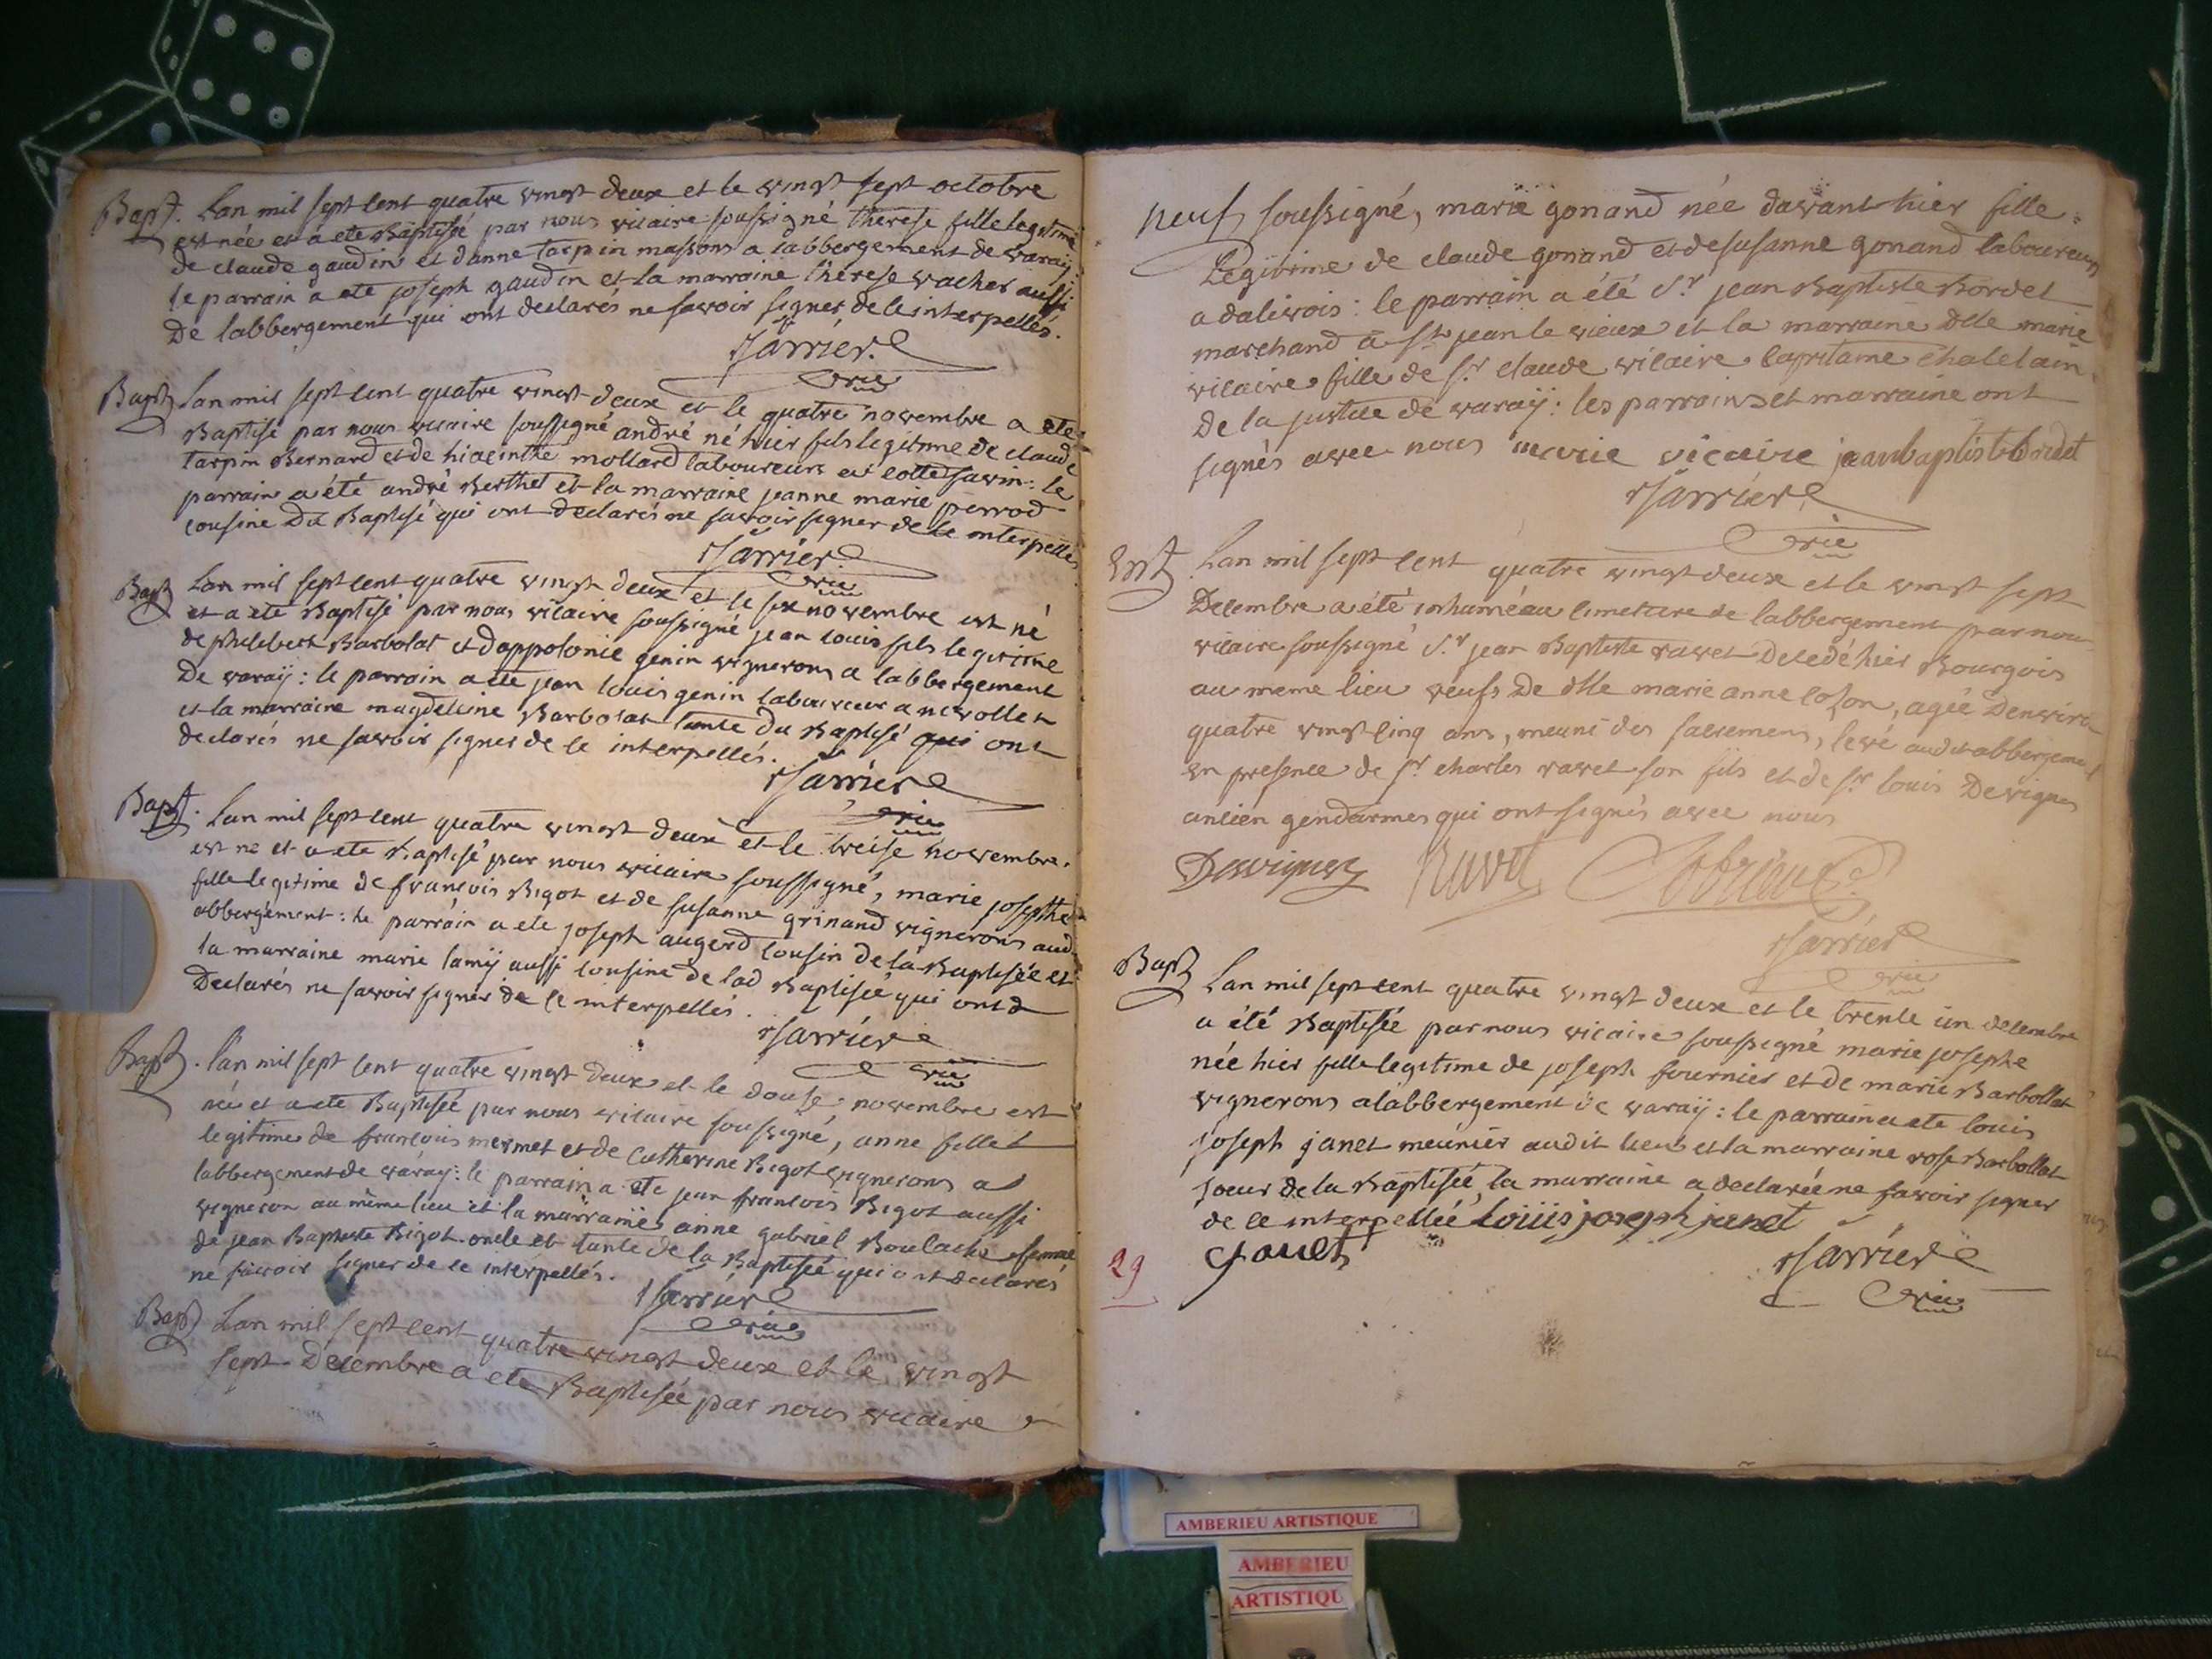 Bapt. Lan mil sept cent quatre vingt deux et le vingt sept octobre
est née et a ete Baptisé par nous vicaire soussigné therese fille legitime
de claude gaudin et danne tarpin massons a labbergement de varaÿ
le parrain a ete joseph gaudin et la marraine therese vacher aussi
De labbergement qui ont declarés ne savoir signer de ce interpellés.
vic
Bapt Lan mil sept cent quatre vingt deux et le quatre novembre a ete
Baptisé par nous vicaire soussigné andré né hier fils legitime de claude
tarpin Bernard et de hiacinthe mollard laboureurs a cottesavin : le
parrain a été andré Berthet et la marraine jeanne marie perrod
cousine du Baptisé qui ont declarés ne savoir signer de ce interpellés
vic
Bapt Lan mil sept cent quatre vingt deux et le six novembre est né
et a ete Baptisé par nous vicaire soussigné jean louis fils legitime
de philibert Barbolat et dappolonie genin vignerons a labbergement
De varaÿ : le parrain a ete jean louis genin laboureur a nivollet
et la marraine magdeleine Barbolat tante du Baptisé qui ont
declarés ne savoir signer de ce interpellés.
vic
Bapt. Lan mil sept cent quatre vingt deux et le treise novembre
est ne et a ete Baptisé par nous vicaire soussigné, marie josephe
fille legitime de francois Bigot et de susanne grinand vignerons aud
abbergement : le parrain a ete joseph augerd cousin de la Baptisée et
la marraine marie lamÿ aussi cousine de lad Baptisée qui ont
Declarés ne savoir signer de ce interpellés.
vic
Bapt. lan mil sept cent quatre vingt deux et le douse novembre est
née et a ete Baptisée par nous vicaire soussigné, anne fille
legitime de francois mermet et de Catherine Bigot vignerons a
labbergement de varaÿ : le parrain a ete jean francois Bigot aussi
vigneron au même lieu et la marraine anne gabriel Boulache femme
de jean Baptiste Bigot oncle et tante de la Baptisée qui ont declarés
ne savoir signer de ce interpellés.
vic
Bapt Lan mil sept cent quatre vingt deux et le vingt
sept Decembre a ete Baptisée par nous vicaire
soussigné, marie gonand née davant hier fille
Legitime de claude gonand et de susanne gonand laboureurs
a dalivois : le parrain a été Sr jean Baptiste Bordet
marchand a St jean le vieux et la marraine Dlle marie
vicaire fille de Sr claude vicaire Capitaine chatelain
De la justice de varaÿ : les parrains et marraine ont
signés avec nous marie vicaire jean baptiste bordet
vic
Ent Lan mil sept cent quatre vingt deux et le vingt sept
Decembre a été inhumé au cimetiere de labbergement par nous
vicaire soussigné Sr jean Baptiste ravet Decedé hier Bourgois
au meme lieu veuf De dlle marie anne coson, agée Denviron
quatre vingt cinq ans, meuni des sacremens, levé audit abbergement
en presence de Sr charles ravet son fils et de Sr louis Devignes
ancien gendarmes qui ont signés avec nous
Devignes Ravet
vic
Bapt Lan mil sept cent quatre vingt deux et le trente un decembre
a été Baptisée par nous vicaire soussigné marie josephe
née hier fille legitime de joseph fournier et de marie Barbollat
vignerons a labbergement de varaÿ : le parrain a ete louis
joseph janet meunier audit lieu et la marraine rose Barbollat
soeur de la Baptisée, la marraine a declarée ne savoir signer
de ce interpellée Louiis joseph janet
29
vic
AMBERIEU ARTISTIQUE
AMBERIEU
ARTISTIQU